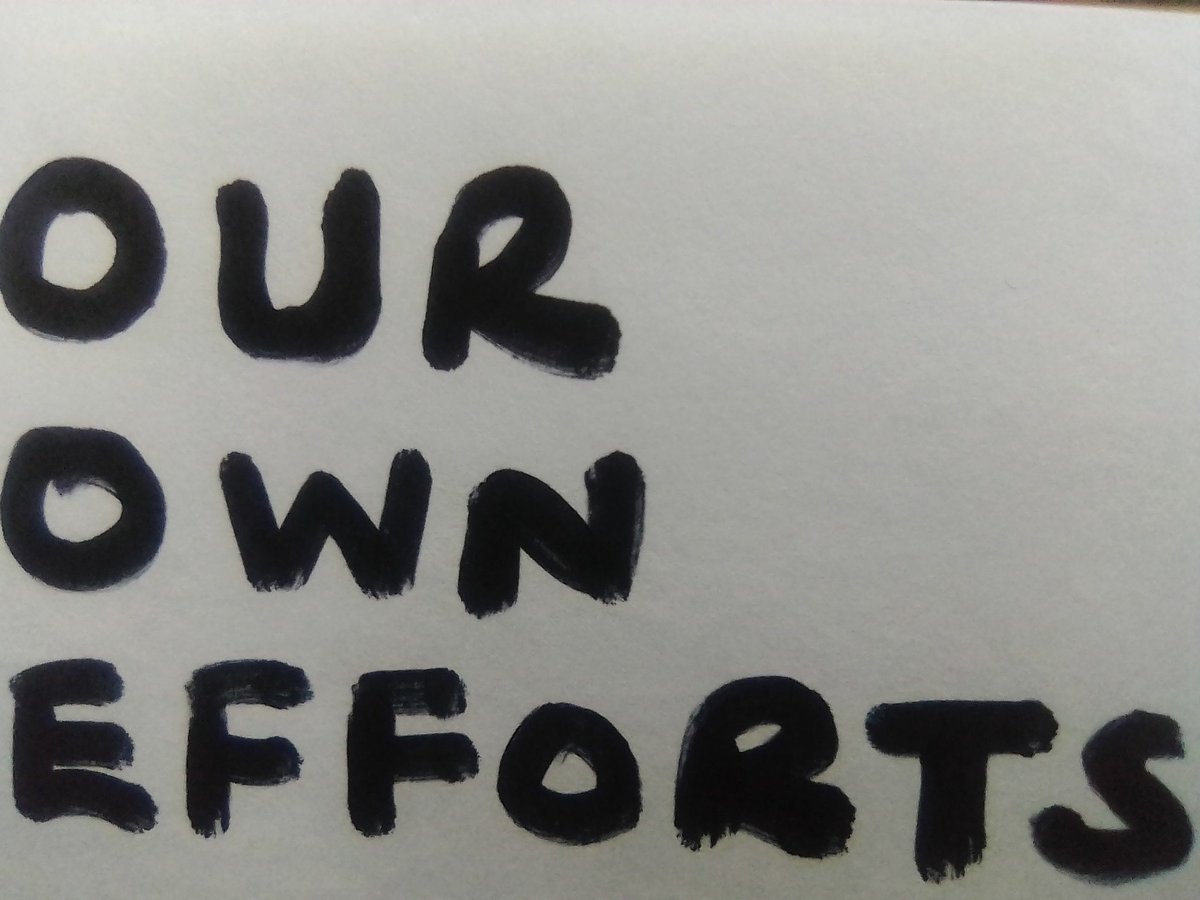 OUR
OWN
EFFORTS